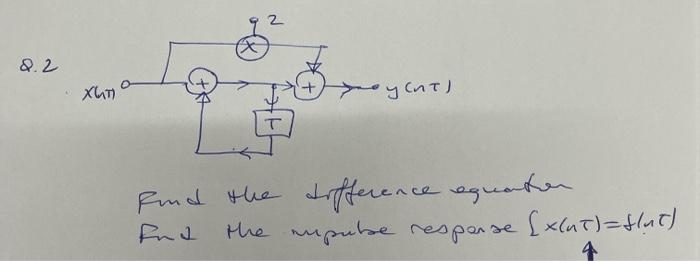 2
Q.2
X
x(nT) + + y(nT)
T
Find the difference equation
Find the impulse response [x(nT)=δ(nT)